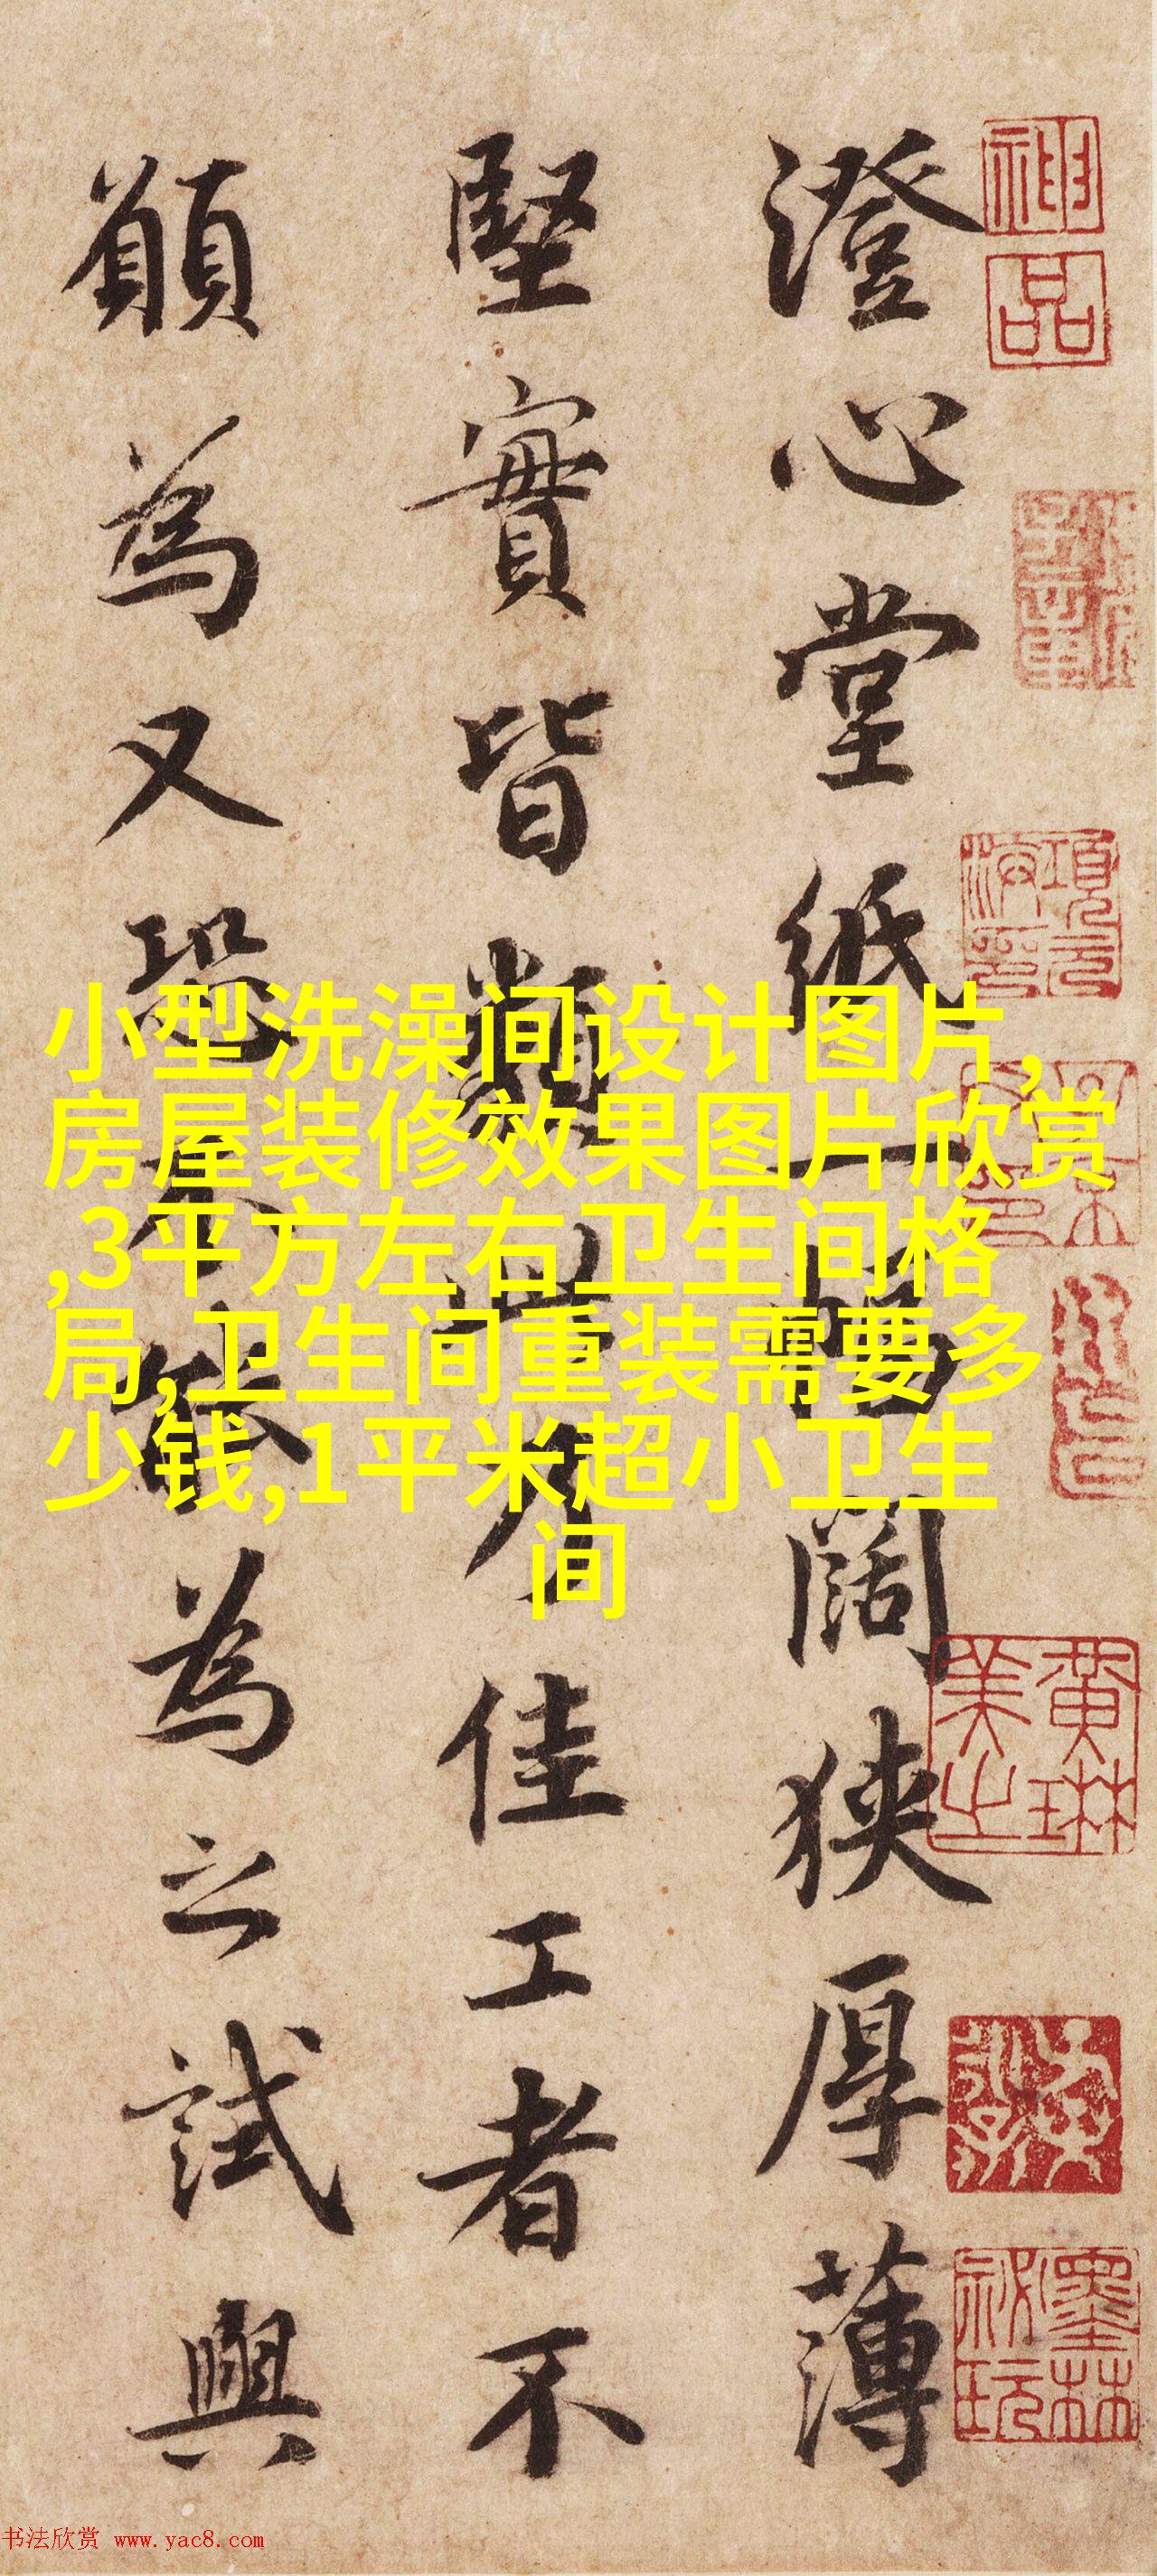 澄心堂紙一幅闊狹厚薄
堅實皆類此乃佳工者不
願為又恐不能為之試與
小型洗澡间设计图片,
房屋装修效果图片欣赏
,3平方左右卫生间格
局,卫生间重装需要多
少钱,1平米超小卫生
间
神品
項元汴印
黃琳美之
墨林祕玩
书法欣赏 www.yac8.com